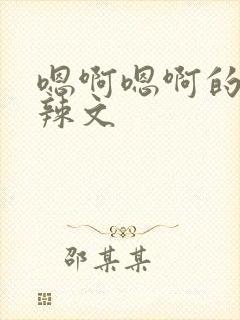 嗯啊嗯啊的
辣文
邵某某